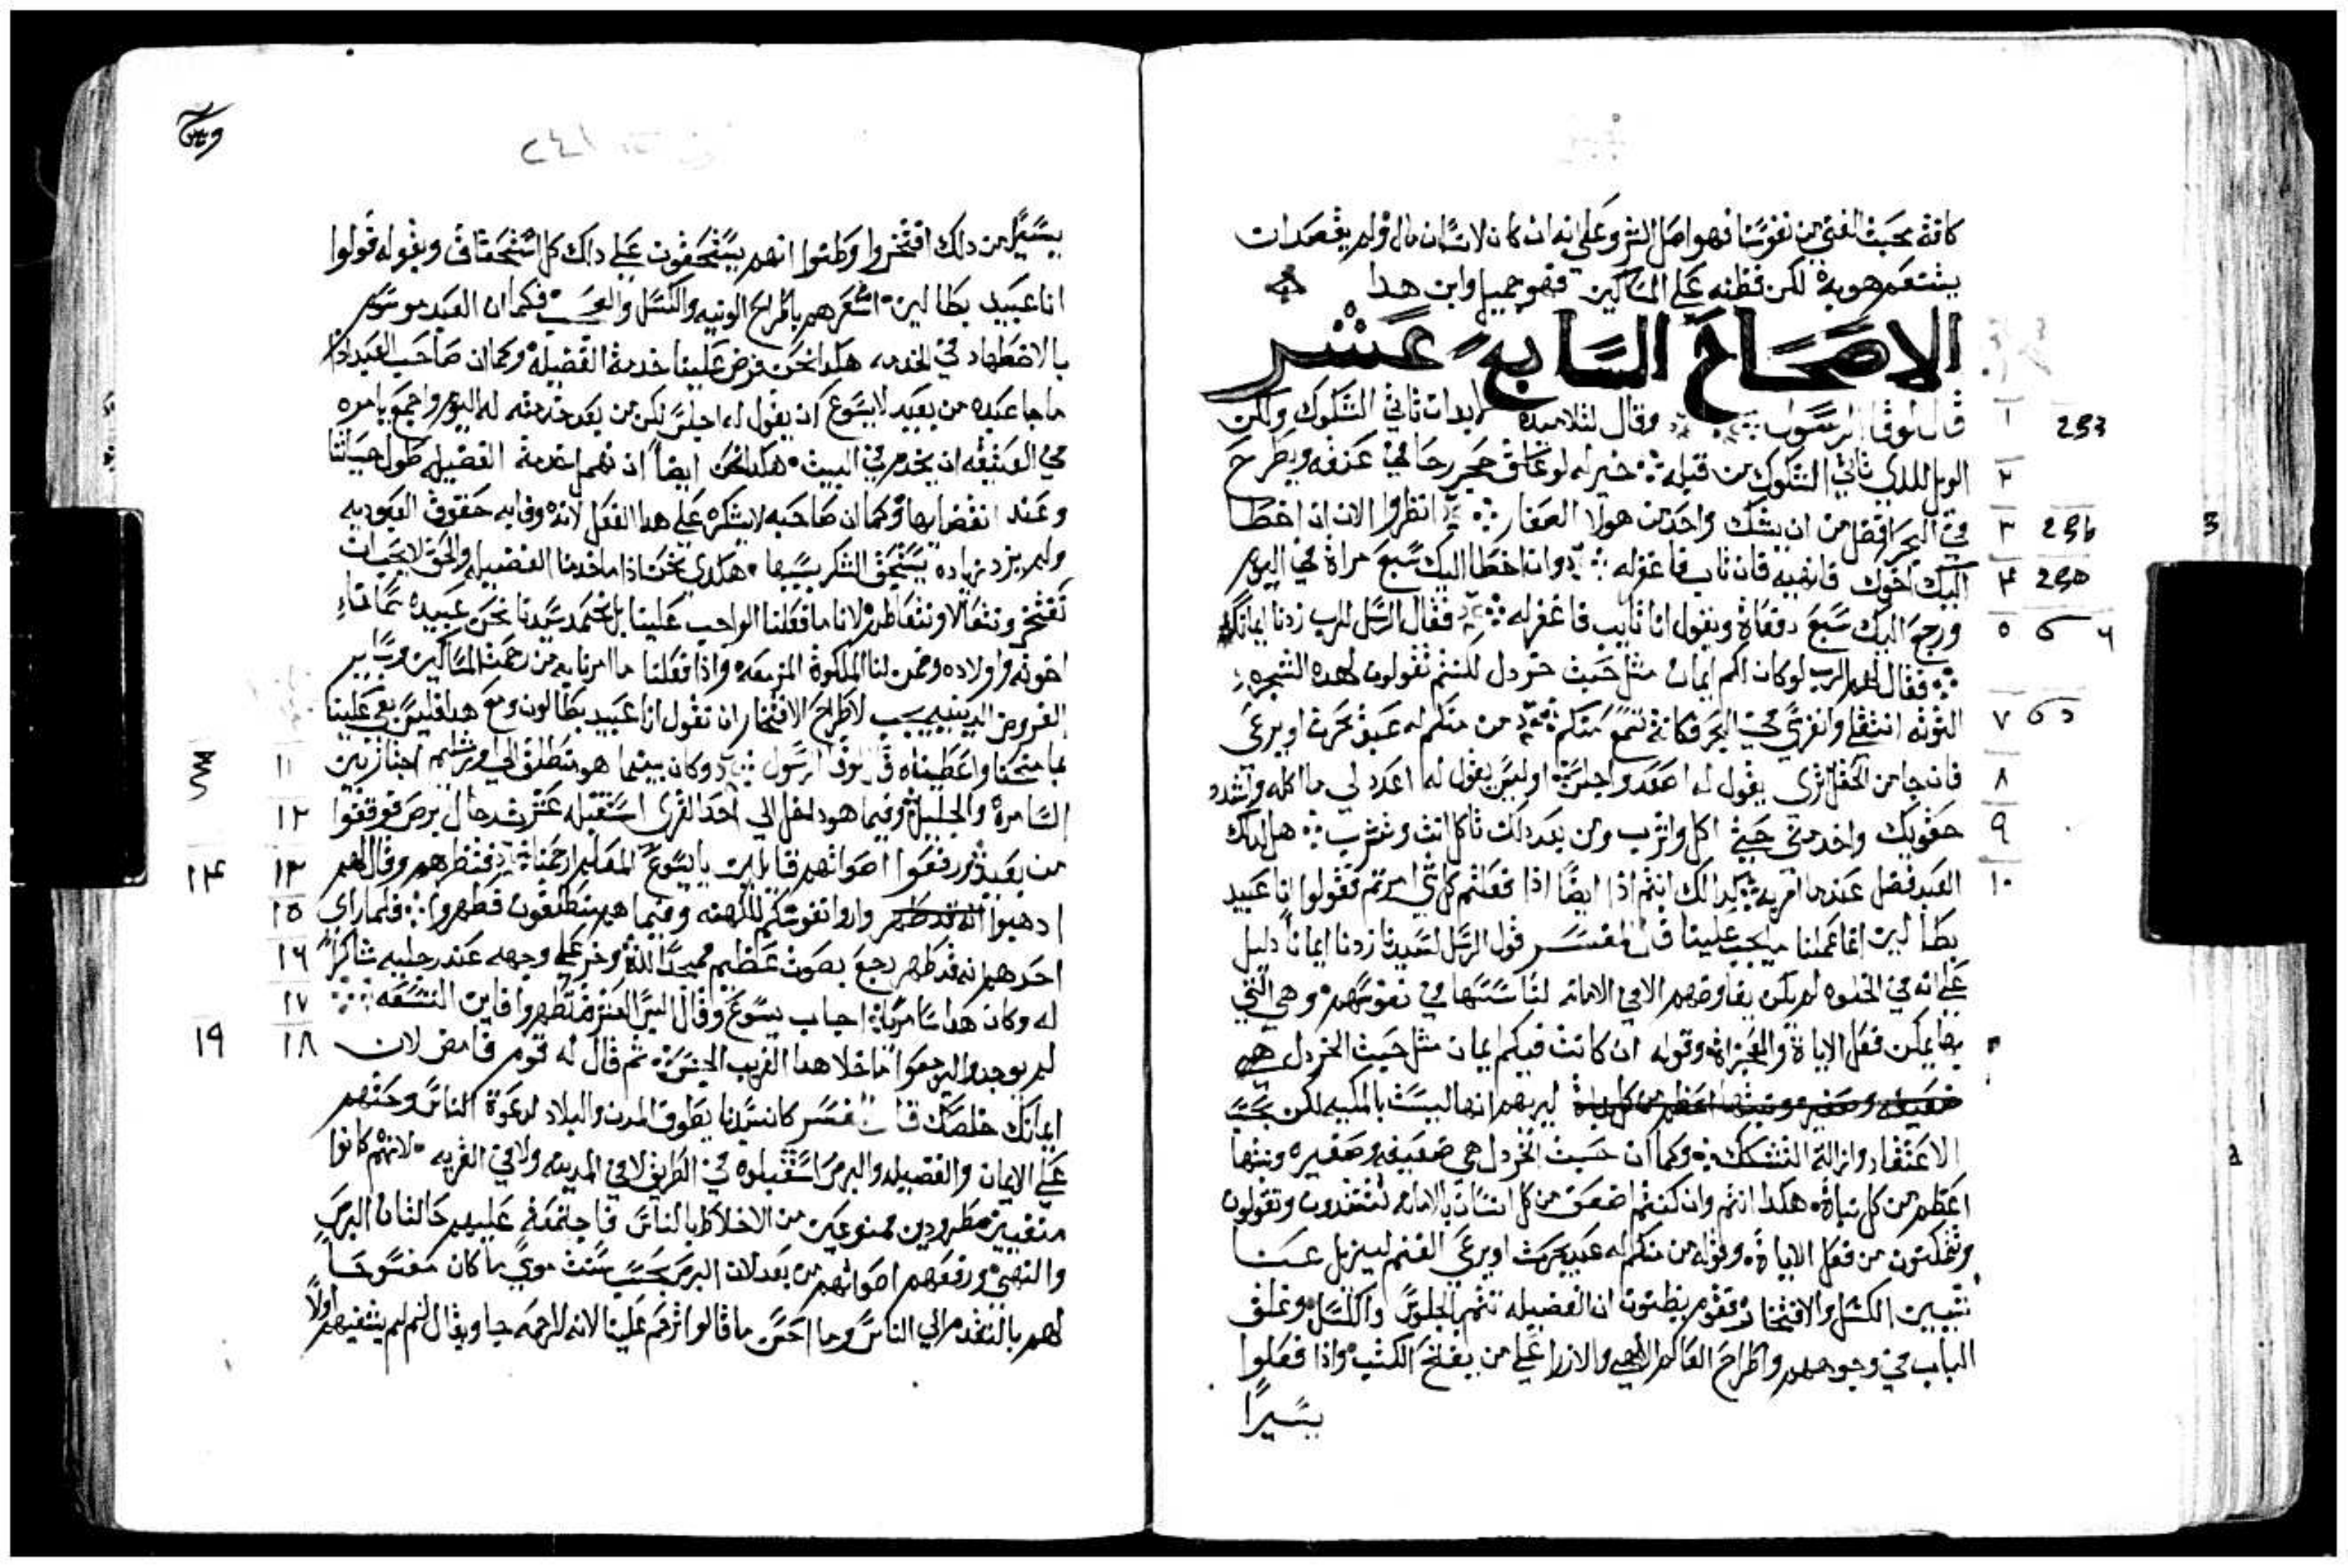 كافة محبت الغنى من نفوسنا فهو اصل الشر وعلى انه ان كان لانسان مال ولم يقصد ان
يتنعم هو به لكن فظنه على المساكين فهو جميل واين هدا
الاصحاح السابع عشر
١ قال لوقا الرسول وقال لتلاميده لا بد ان تاتي الشكوك ولكن 293
٢ الويل للدي تاتي الشكوك من قبله خير له لو علق حجر رحا في عنقه ويطرح
٣ في البحر افضل من ان يشك واحد من هولا الصغار انظروا الان ان اخطا
٤ اليك اخوك فانهيه فان تاب فاغفر له وان اخطا اليك سبع مراة في اليوم
٥ ورجع اليك سبع دفعاة ويقول انا تايب فاغفر له فقال الرسل للرب زدنا ايمانك
فقال لهم الرب لو كان لكم ايمان مثل حبت خردل لكنتم تقولون لهده الشجره
٧ التوته انتقلي وانغرسي في البحر فكانة تسمع منكم من منكم له عبد يحرت او يرعى
٨ فان جا من الحقل ترى يقول له اصعد واجلس او ليس يقول له اعدد لي ما اكله واشدد
٩ حقويك واخدمني حتي اكل واشرب ومن بعد دلك تاكل انت وتشرب هل لدلك
١٠ العبد فضل عندما امر به كدالك انتم ادا ايضا ادا فعلتم كل شي امرتم فقولوا انا عبيد
بطالين انما عملنا ما يجب علينا قال المفسر قول الرسل لسيدنا زدنا ايمانا دليل
على انه في الخلوه لم يكن يفاوضهم الا في الامانه لتاسسها في نفوسهم وهي التي
بها يمكن فعل الاياة والمعجزاة وقوله ان كانت فيكم ايمان مثل حبت الخردل هي
ليريهم انها ليست بالكميه لكن بحسب
الاعتقاد وازالة التشكك وكما ان حبت الخردل هي ضعيفه وصغيره ونبتها
اعظم من كل نباة هكدا انتم وان كنتم اضعف من كل انسان بالامانه تقتدرون وتقولون
وتتمكنون من فعل الاياة وقوله من منكم له عبد يحرت او يرعي الغنم ليزيل عنا
تبيين الكسل والافتخار فقوم يظنون ان الفضيله تتم بالجلوس والكسل وغلق
الباب في وجوههم واطراح العالم الالهي والازرا على من يفلح الكتب وادا فعلوا
يسيرا
٢٤١
يسيرا من دلك افتخروا وظنوا انهم يستحقون على داك كل استحقاق وبقوله قولوا
انا عبيد بطالين اشعرهم باطراح الونيه والكسل والعجب فكما ان العبد موسوم
بالاضطهاد في الخدمه هكدا نحن فرض علينا خدمة الفضيلة وكما ان صاحب العبد ادا
ما جا عبده من بعيد لا يسوع ان يقول له اجلس لكن من بعد خدمته له اليوم واجمع يامره
في العتيقه ان يخدم في البيت هكدا نحن ايضا ان نهم بخدمة الفضيله طول حياتنا
وعند انقضايها وكما ان صاحبه لا يشكره على هدا الفعل لانه وفا به حقوق العبوديه
ولم يزد زياده يستحق الشكر بسببها هكدى نحن ادا ما خدمنا الفضيله والحق لا يجب ان
نفتخر ونتعالا ونتعاظم لانا ما فعلنا الواجب علينا بل نحمد سيدنا نحن عبيده سمانا
اخوته واولاده وضمن لنا الملكوة المزمعة وادا فعلنا ما امرنا به من رحمت المساكين وسايـر
الفروض الدينيه يجب لاطراح الافتخار ان نقول انا عبيد بطالون ومع هدا فليس بقي علينا
١١ مما منحنا واعطيناه قال لوقا الرسول وكان بينما هو منطلق الي اورشليم اجتاز بين
١٢ السامرة والجليل وفيما هو داخل الي احد القرى استقبله عشرت رجال برص فوقفوا
١٣ من بعيد ورفعوا اصواتهم قايلين يا يسوع المعلم ارحمنا فنظرهم وقال لهم ١٤
١٥ ادهبوا واروا نفوسكم للكهنه وفيما هم منطلقون تطهروا فلما راي
١٦ احدهم انه قد طهر رجع بصوت عظيم ممجدا الله وخر على وجهه عند رجليه شاكرا
١٧ له وكان هدا سامريا اجاب يسوع وقال اليس العشرة تطهروا فاين التسعه
١٨ لم يوجدوا ليرجعوا ما خلا هدا الغريب الجنس ثم قال له قوم فامض لان ١٩
ايمانك خلصك قال المفسر كان سيدنا يطوف المدن والبلاد لدعوة الناس وحتهم
على الايمان والفضيله والبرص استقبلوه في الطريق لا في المدينه ولا في القريه لانهم كانوا
منفيين مطرودين ممنوعين من الاختلاط بالناس فاجتمعة عليهم حالتان البرص
والنهي ورفعهم اصواتهم من بعد لان البرص بحسب سنت موسي ما كان مفسوحا
لهم بالتقدم الي الناس وما احسن ما قالوا ترحم علينا لانه للرحمه جا ويقال لم لم يشفيهم اولا